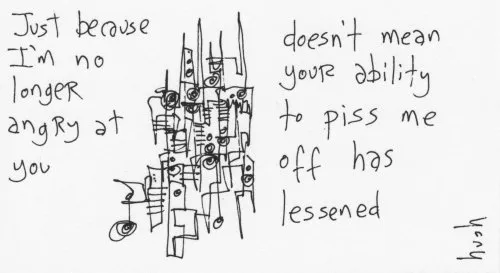 Just because
I'm no
longer
angry at
you
doesn't mean
your ability
to piss me
off has
lessened
hugh